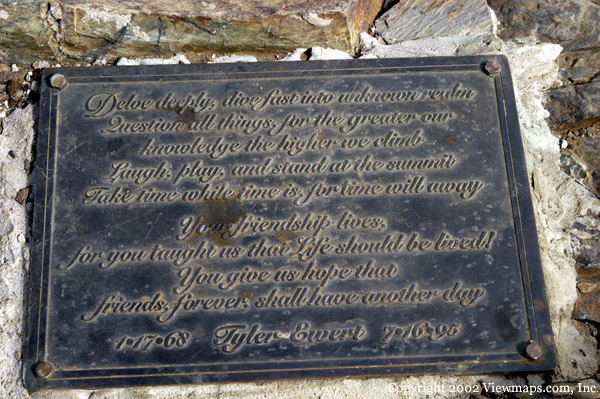 Delve deeply, dive fast into unknown realm
Question all things, for the greater our
knowledge the higher we climb
Laugh, play, and stand at the summit
Take time while time is for time will away
Your friendship lives,
for you taught us that Life should be lived!
You give us hope that
friends, forever, shall have another day
1·17·68 Tyler Ewert 7·16·95
Copyright © 2002 Viewmaps.com, Inc.